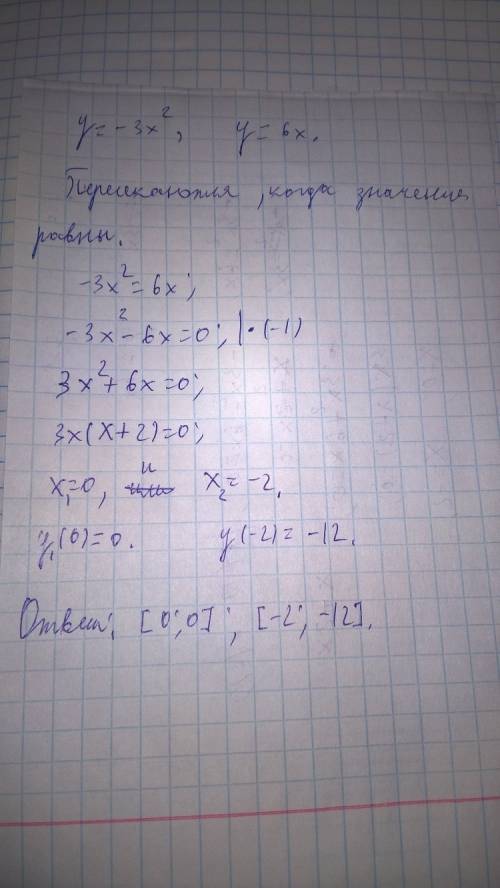 y = -3x², y = 6x.
Пересекаются, когда значения
равны.
-3x² = 6x;
-3x² - 6x = 0; | · (-1)
3x² + 6x = 0;
3x(x+2) = 0;
x₁ = 0, и x₂ = -2.
y₁(0) = 0. y(-2) = -12.
Ответ: [0; 0]; [-2; -12].